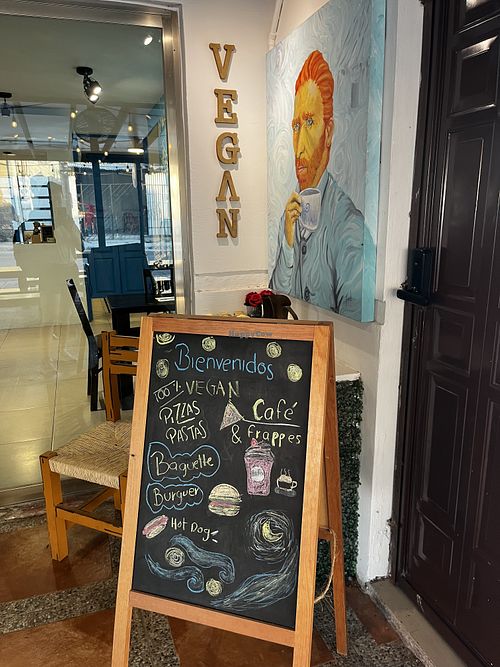 VEGAN
HappyCow
Bienvenidos
100% VEGAN
PIZZAS
PASTAS
Café
& frappes
Baguette
Burguer
Hot Dog